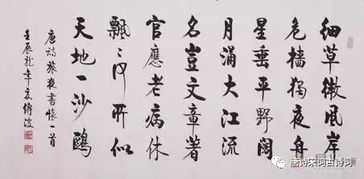 细草微风岸
危樯独夜舟
星垂平野阔
月涌大江流
名岂文章著
官应老病休
飘飘何所似
天地一沙鸥
唐诗旅夜书怀一首
唐诗宋词古诗词